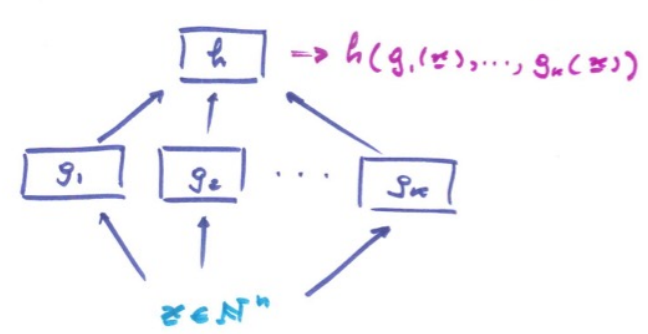 h → h(g₁(x),..., gₖ(x))
g₁ g₂ .... gₖ
x ∈ ℕⁿ